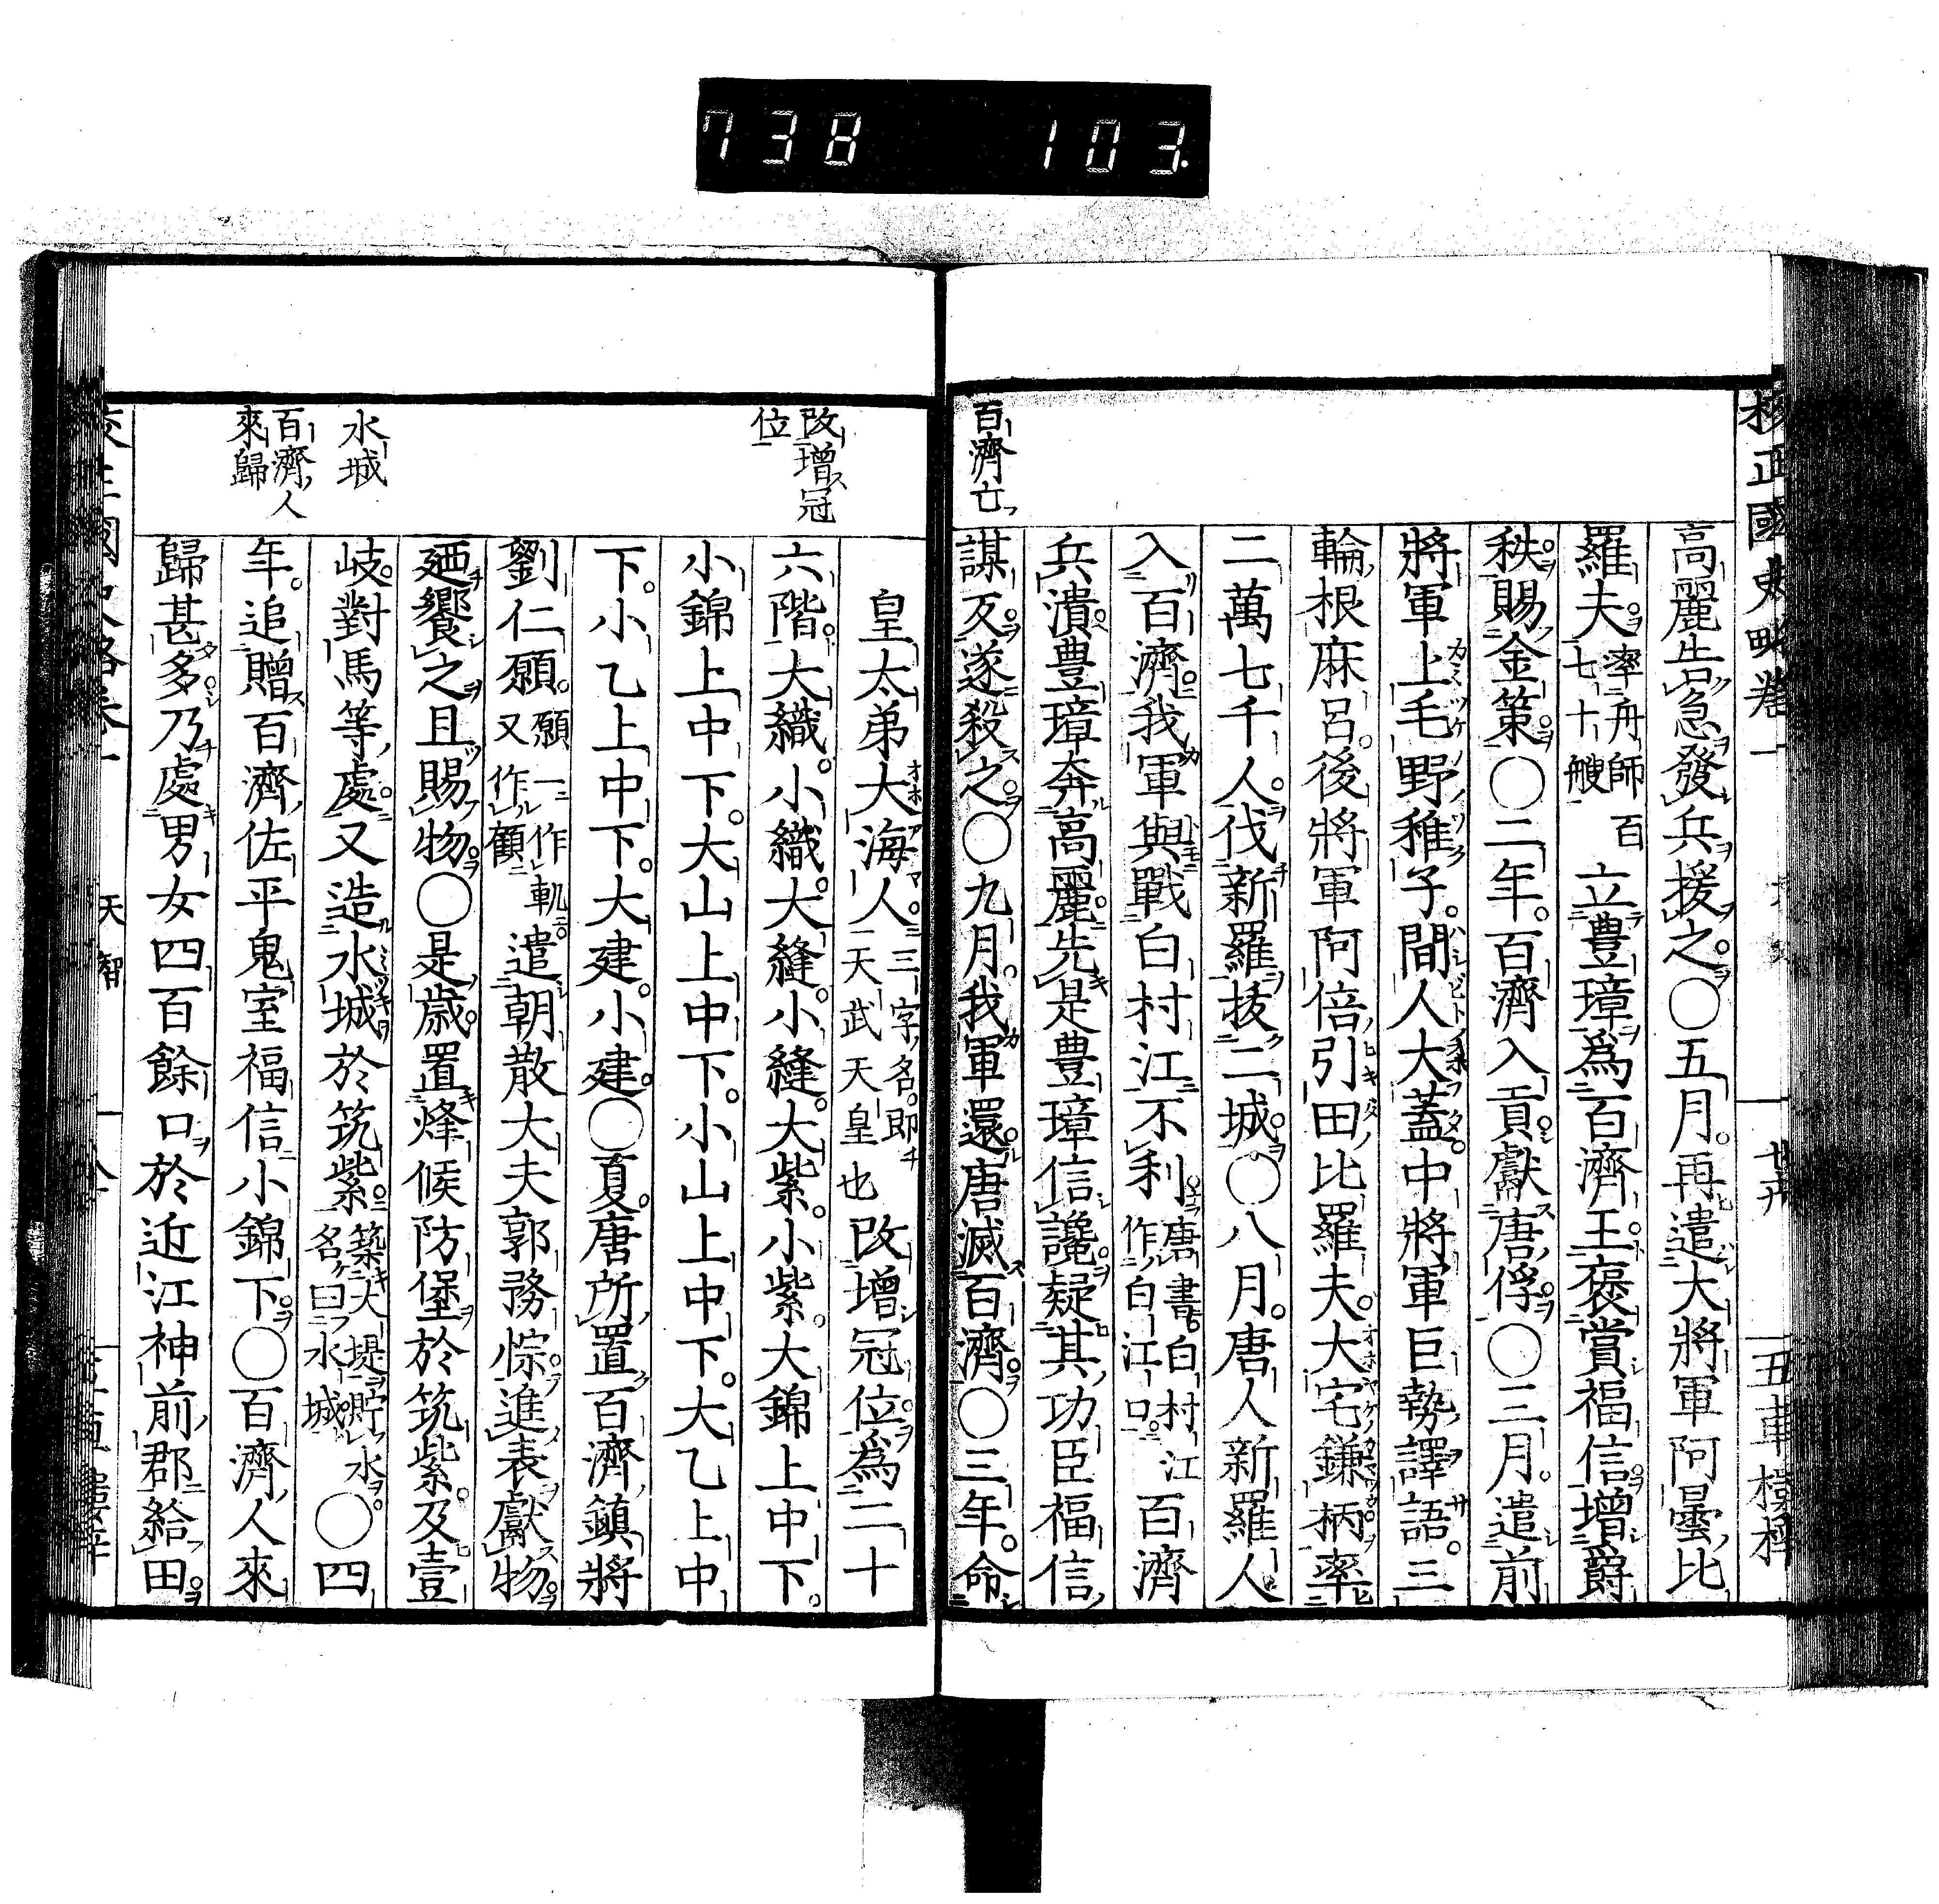 738 103.
校正國史略卷一
高麗告急發兵援之○五月再遣大將軍阿曇比
羅夫率舟師百七十艘立豊璋爲百濟王褒賞福信增爵
秩賜金策○二年百濟入貢獻唐俘○三月遣前
將軍上毛野稚子間人大蓋中將軍巨勢譯語三
輪根麻呂後將軍阿倍引田比羅夫大宅鎌柄率
二萬七千人伐新羅拔二城○八月唐人新羅人
入百濟我軍與戰白村江不利唐書白村江作白江口百濟
兵潰豊璋奔高麗先是豊璋信讒疑其功臣福信
百濟亡
謀反遂殺之○九月我軍還唐滅百濟○三年命
皇太弟大海人三字名即天武天皇也改增冠位爲二十
改增冠位
六階大織小織大縫小縫大紫小紫大錦上中下
小錦上中下大山上中下小山上中下大乙上中
下小乙上中下大建小建○夏唐所置百濟鎮將
劉仁願願一作軌又作顧遣朝散大夫郭務悰進表獻物
廼饗之且賜物○是歳置烽候防堡於筑紫及壹
水城
岐對馬等處又造水城於筑紫築大堤貯水名曰水城○四
百濟人來歸
年追贈百濟佐平鬼室福信小錦下○百濟人來
歸甚多乃處男女四百餘口於近江神前郡給田
天智